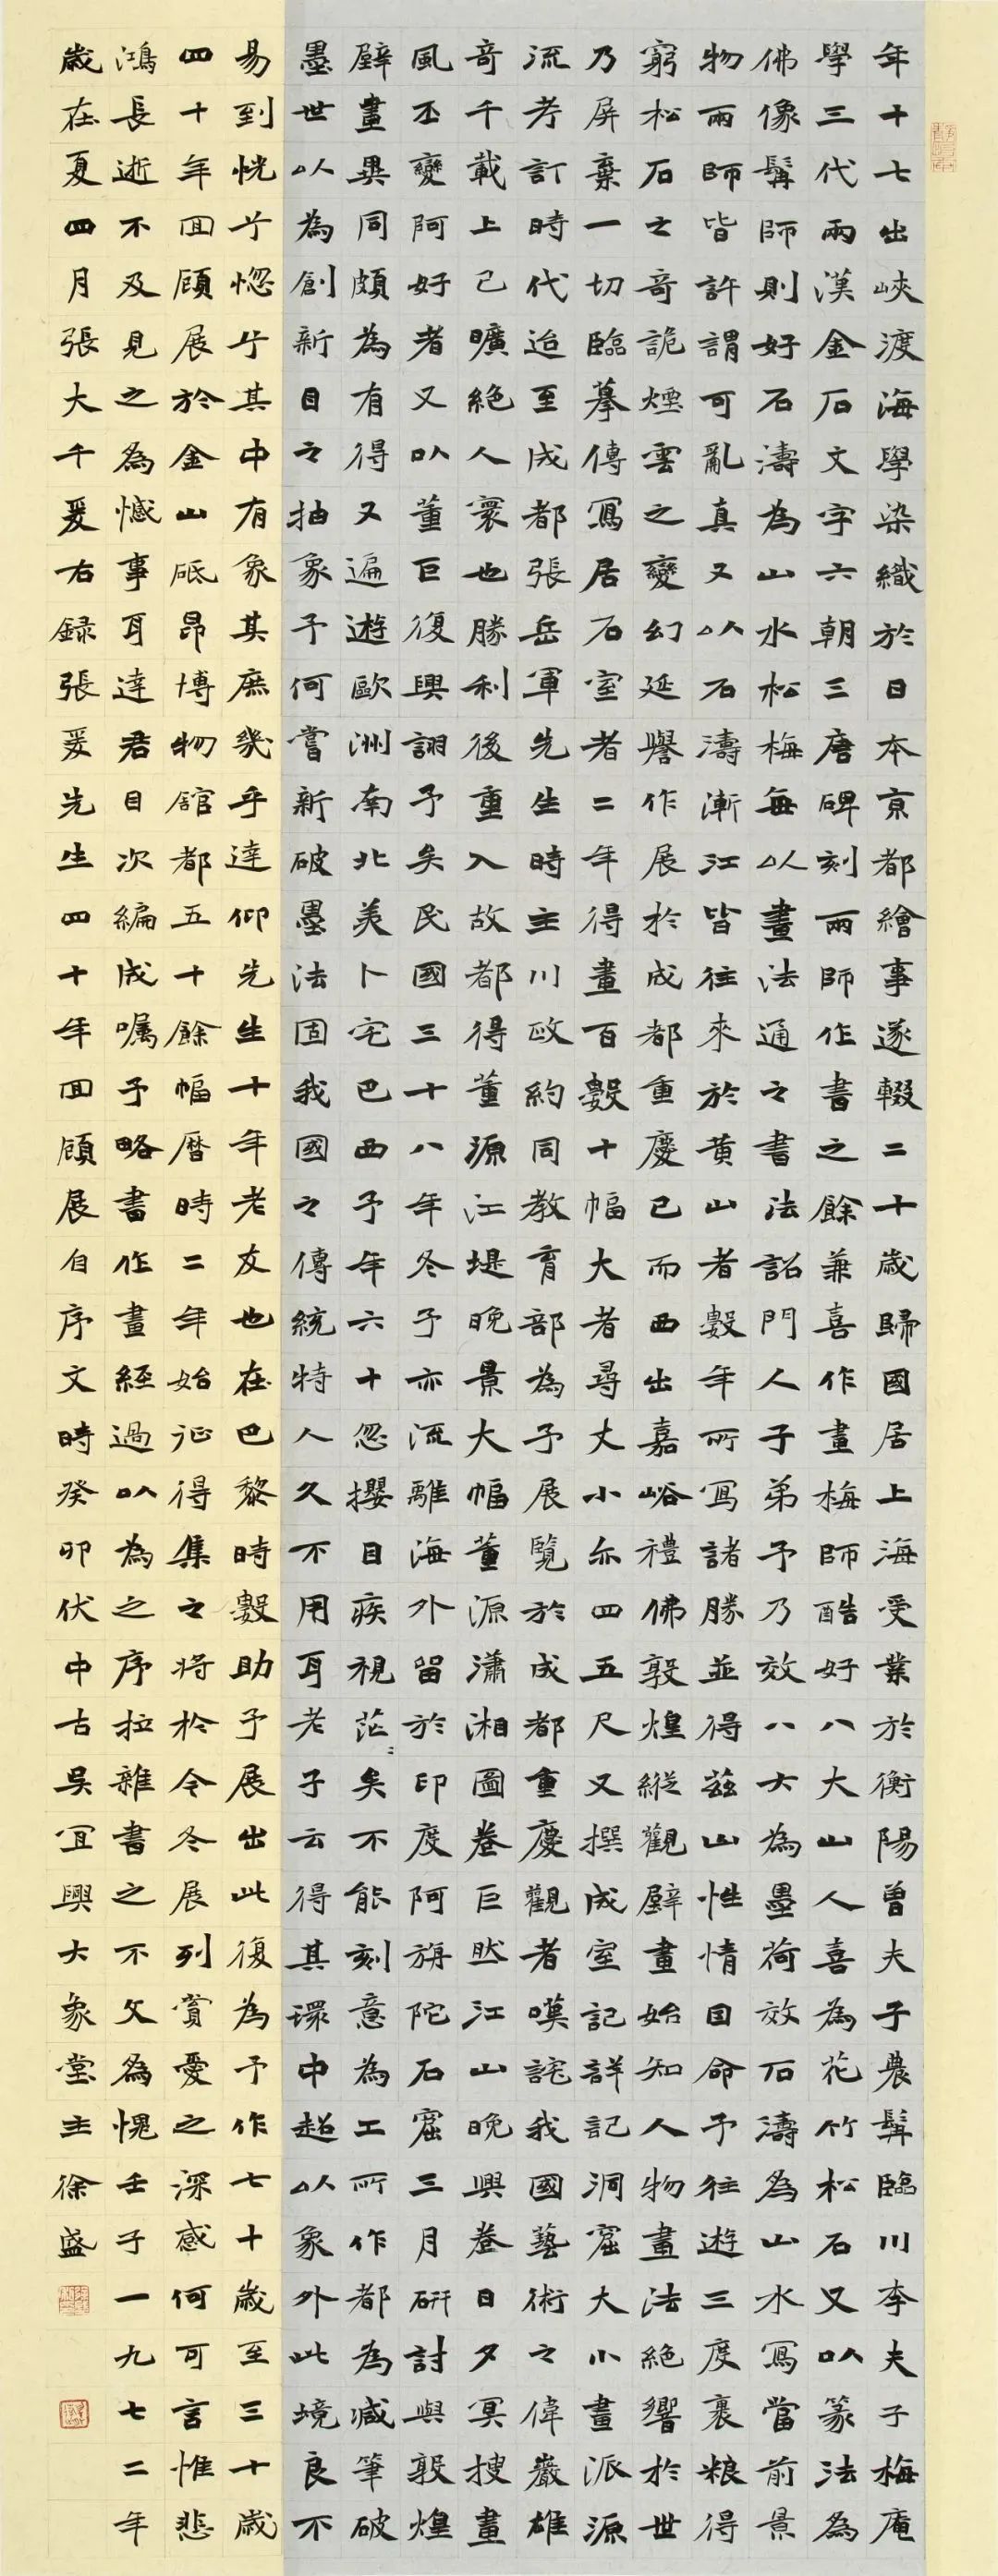 年十七出峽渡海學染織於日本京都繪事遂輟二十歲歸國居上海受業於衡陽曾夫子農髯臨川李夫子梅庵
學三代兩漢金石文字六朝三唐碑刻兩師作書之餘兼喜作畫梅師酷好八大山人喜為花竹松石又以篆法為
佛像髯師則好石濤為山水松梅每以畫法通之書法詔門人子弟予乃效八大為墨荷效石濤為山水寫當前景
物兩師皆許謂可亂真又以石濤漸江皆往來於黃山者數年所寫諸勝並得茲山性情因命予往遊三度裹粮得
窮松石之奇詭煙雲之變幻延譽作展於成都重慶已而西出嘉峪禮佛敦煌縱觀壁畫始知人物畫法絕響於世
乃屏棄一切臨摹傳寫居石室者二年得畫百數十幅大者尋丈小亦四五尺又撰成室記詳記洞窟大小畫派源
流考訂時代迨至成都張岳軍先生時主川政約同教育部為予展覽於成都重慶觀者嘆詫我國藝術之偉嚴雄
奇千載上已曠絕人寰也勝利後重入故都得董源江堤晚景大幅董源瀟湘圖卷巨然江山晚興卷日夕冥搜畫
風丕變阿好者又以董巨復興詡予矣民國三十八年冬予亦流離海外留於印度阿旃陀石窟三月研討與敦煌
壁畫異同頗為有得又遍遊歐洲南北美卜宅巴西予年六十忽攖目疾視茫〻矣不能刻意為工所作都為減筆破
墨世以為創新目之抽象予何嘗新破墨法固我國之傳統特人久不用耳老子云得其環中超以象外此境良不
易到恍兮惚兮其中有象其庶幾乎達仰先生十年老友也在巴黎時數助予展出此復為予作七十歲至三十歲
四十年回顧展於金山砥昂博物館都五十餘幅曆時二年始征得集之將於今冬展列賞愛之深感何可言惟悲
鴻長逝不及見之為憾事耳達君目次編成囑予略書作畫經過以為之序拉雜書之不文為愧壬子一九七二年
歲在夏四月張大千爰右録張爰先生四十年回顧展自序文時癸卯伏中古吳宜興大象堂主徐盛